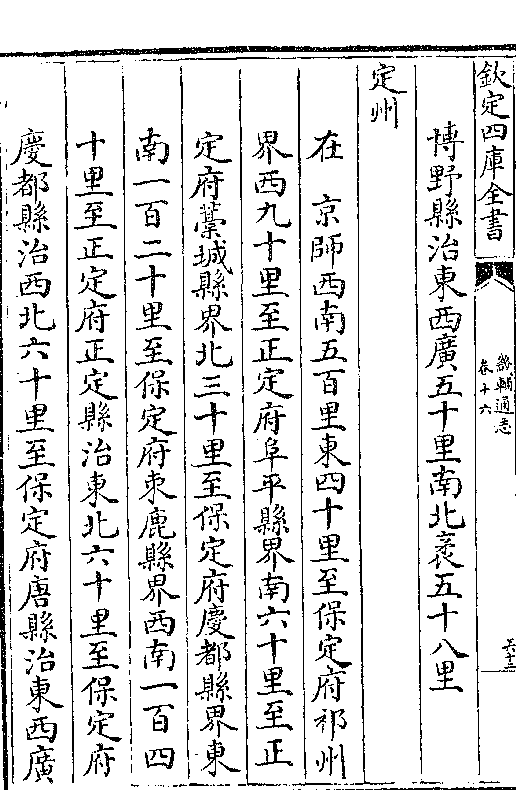 欽定四庫全書
畿輔通志
卷十六
六十三
博野縣治東西廣五十里南北袤五十八里
定州
在 京師西南五百里東四十里至保定府祁州
界西九十里至正定府阜平縣界南六十里至正
定府藁城縣界北三十里至保定府慶都縣界東
南一百二十里至保定府束鹿縣界西南一百四
十里至正定府正定縣治東北六十里至保定府
慶都縣治西北六十里至保定府唐縣治東西廣